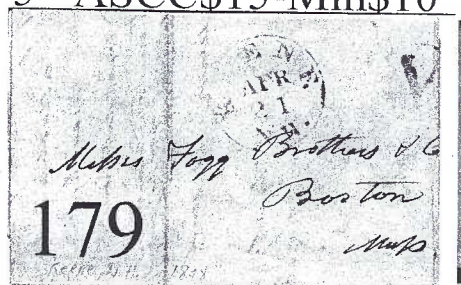 ASCC$15-Min$10
APR
21
N.H.
Messrs Fogg Brothers & Co
Boston
Mass
179
Keene, N.H. 1848